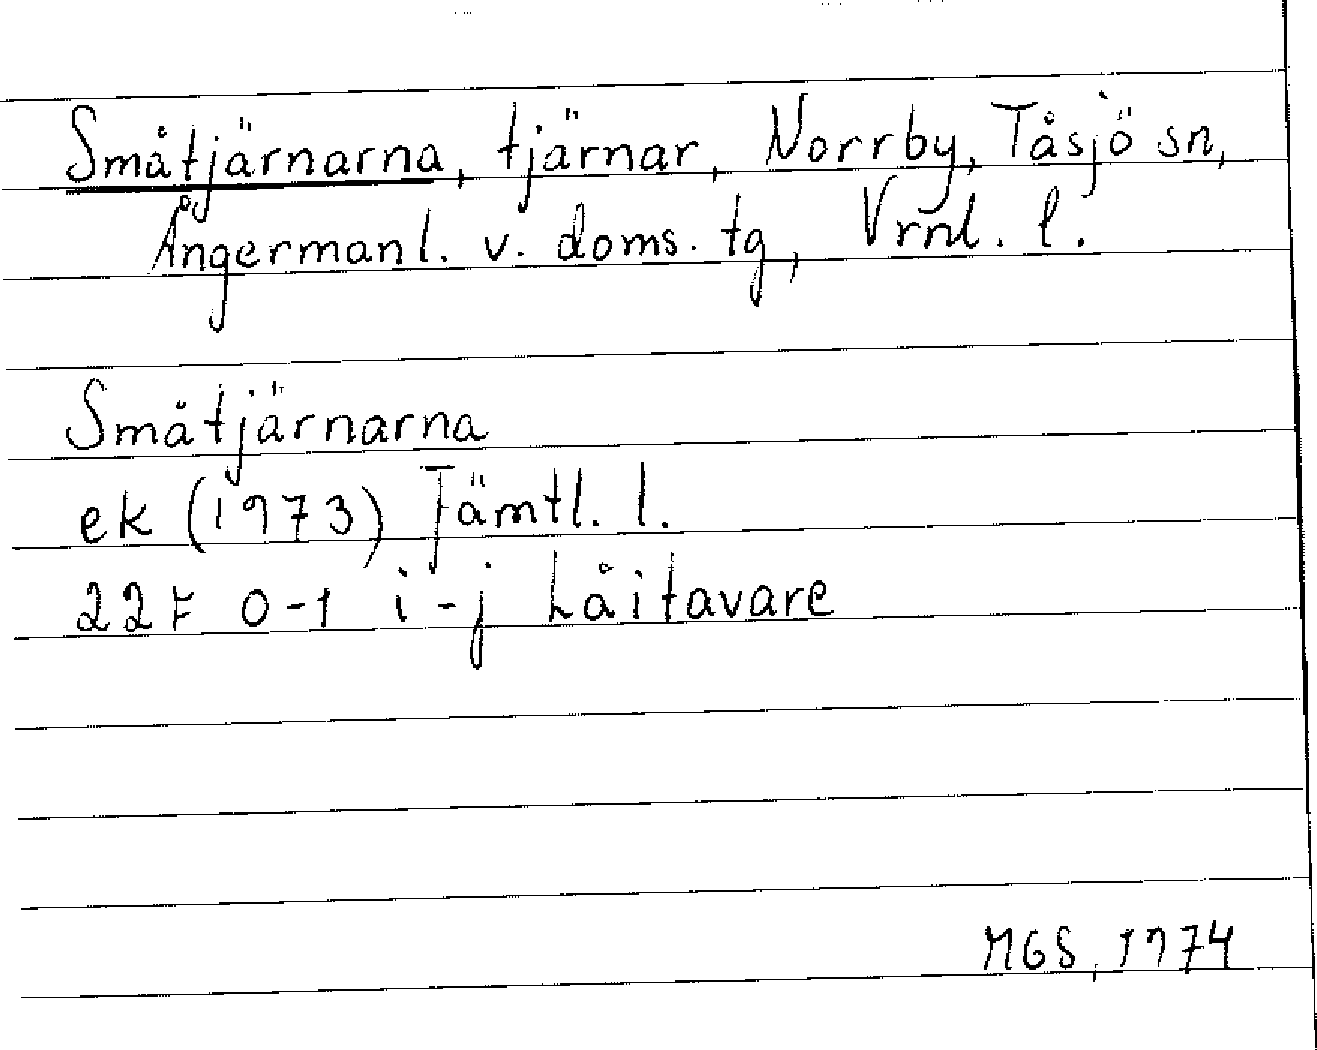 Småtjärnarna, tjärnar, Norrby, Tåsjö sn,
Ångermanl. v. doms. tg, Vrnl. l.
Småtjärnarna
ek (1973) Jämtl. l.
22F 0-1 i-j Låitavare
MGS, 1974